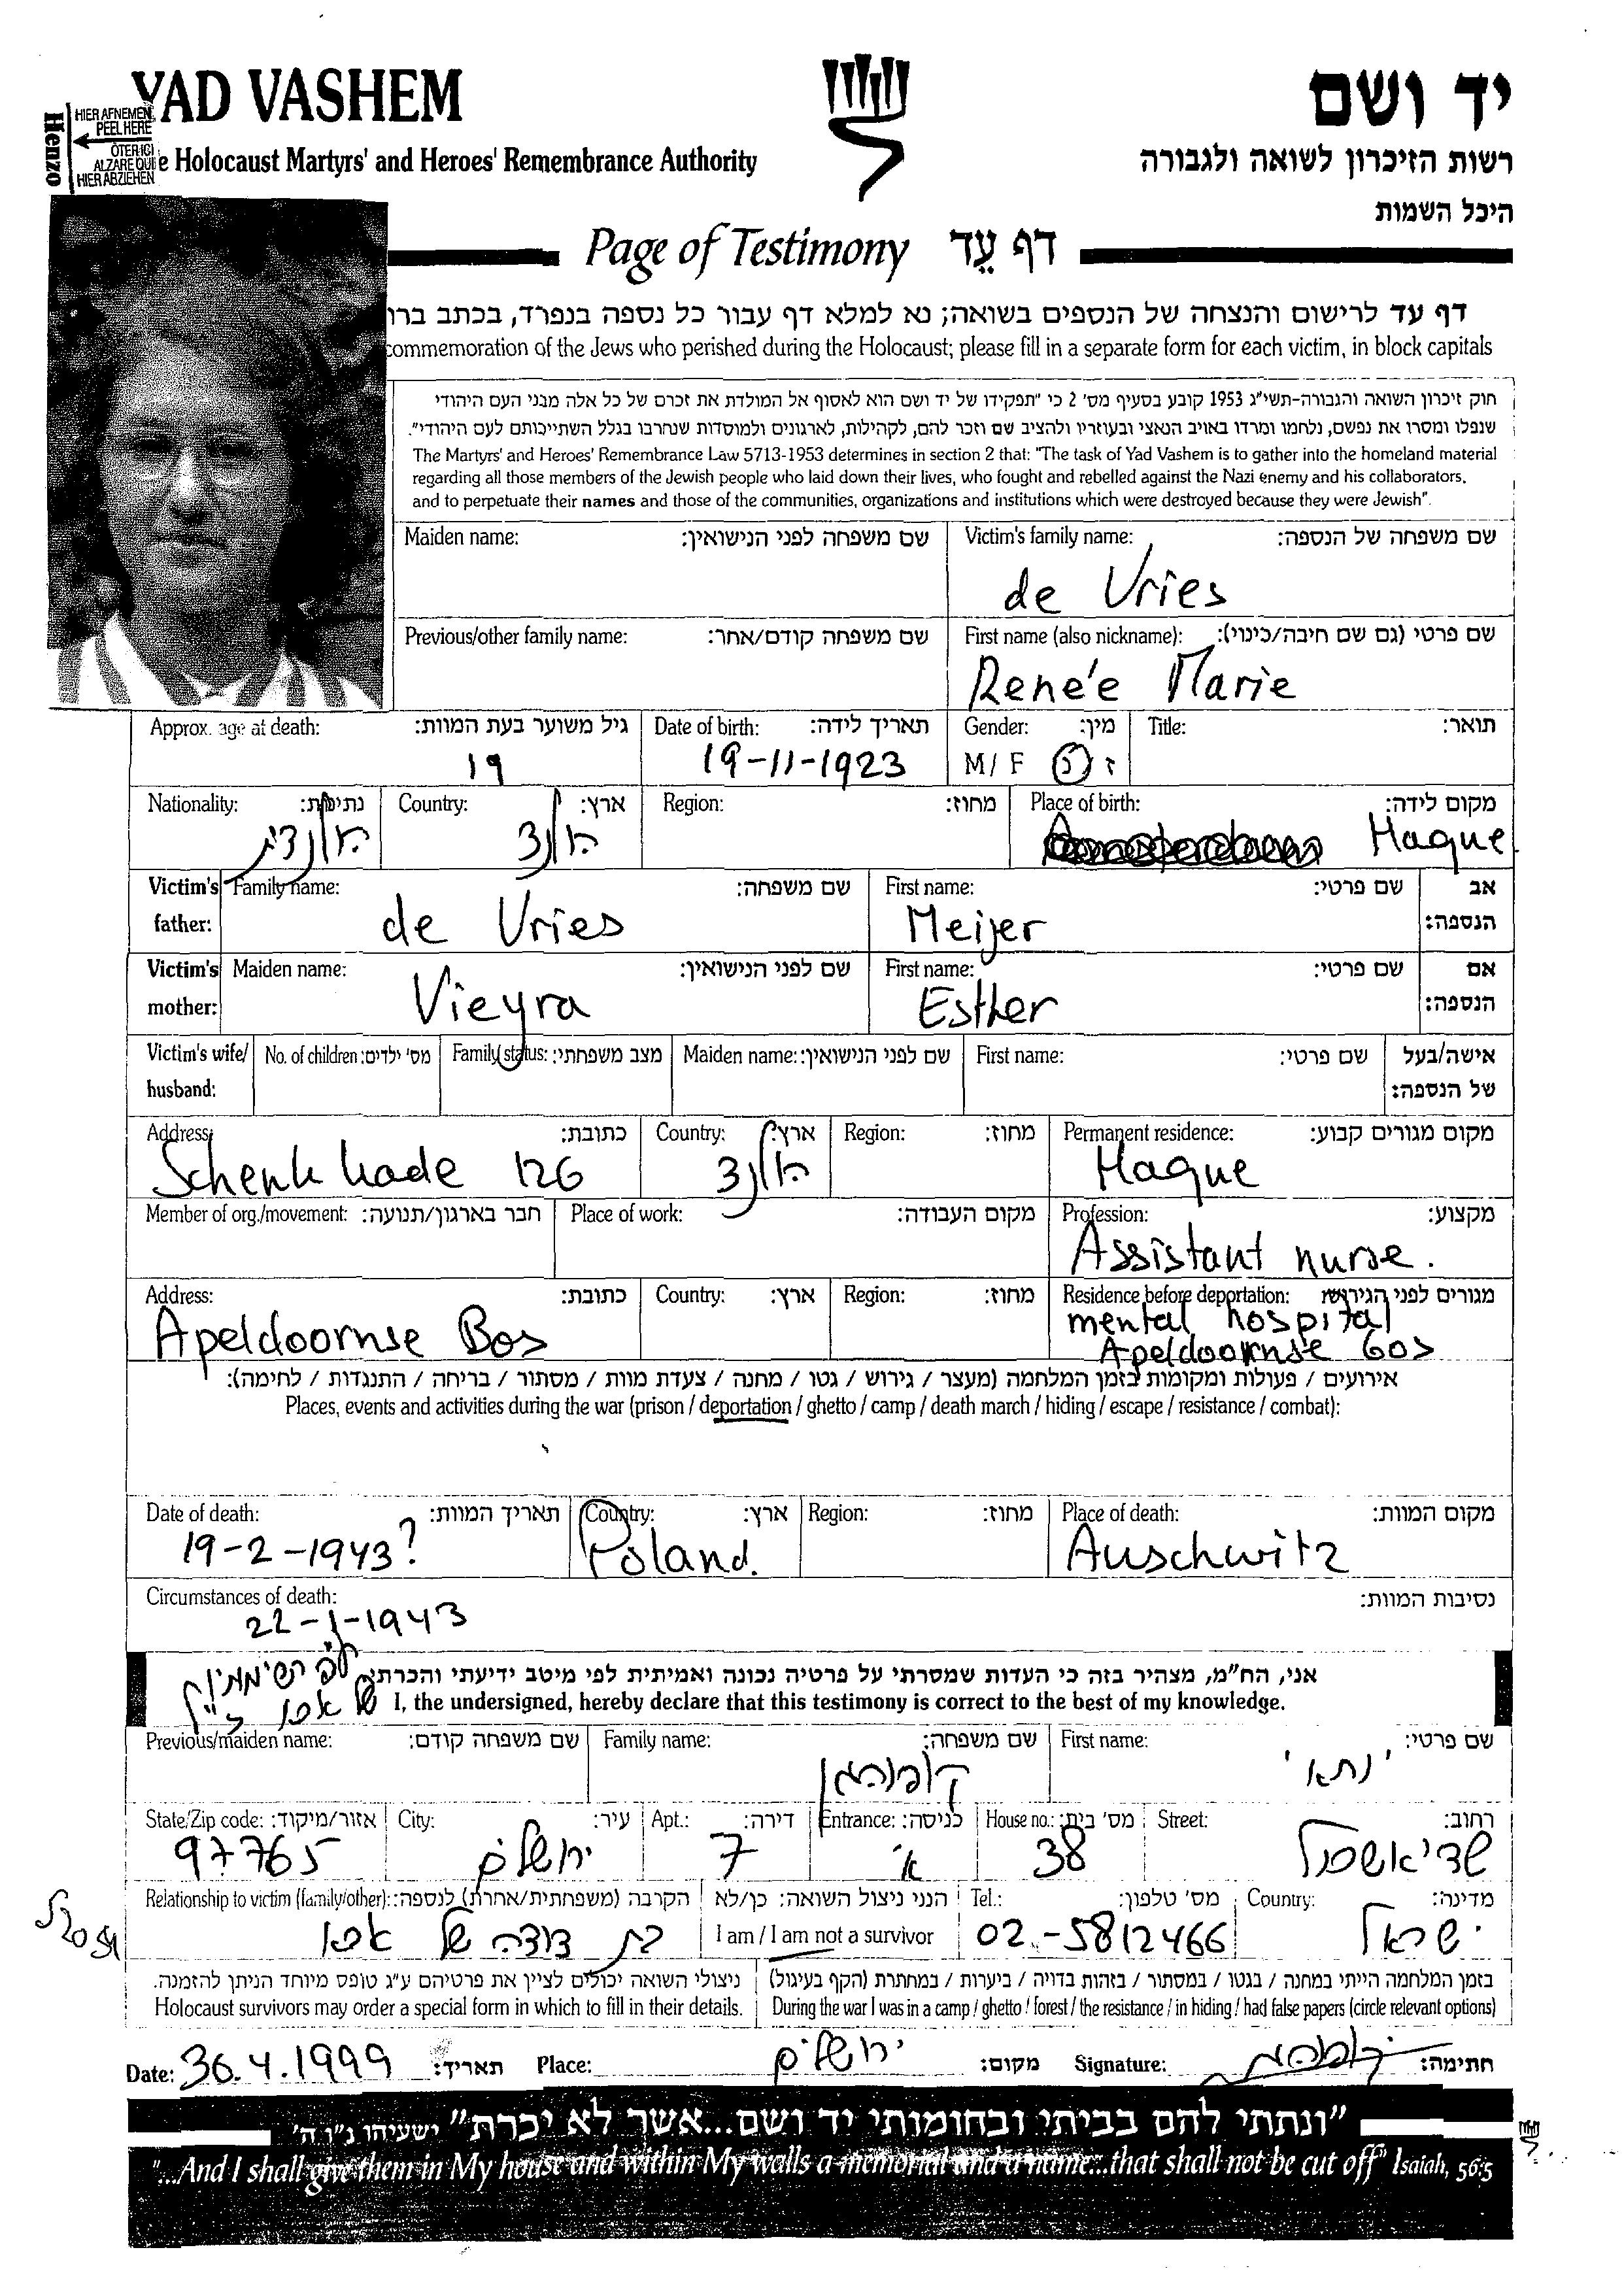 YAD VASHEM
יד ושם
HIER AFNEMEN
PEEL HERE
ÔTER ICI
ALZARE QUI
HIER ABZIEHEN
Henzo
e Holocaust Martyrs' and Heroes' Remembrance Authority
רשות הזיכרון לשואה ולגבורה
היכל השמות
Page of Testimony דף עֵד
דף עד לרישום והנצחה של הנספים בשואה; נא למלא דף עבור כל נספה בנפרד, בכתב ברו
commemoration of the Jews who perished during the Holocaust; please fill in a separate form for each victim, in block capitals
חוק זיכרון השואה והגבורה-תשי"ג 1953 קובע בסעיף מס' 2 כי "תפקידו של יד ושם הוא לאסוף אל המולדת את זכרם של כל אלה מבני העם היהודי
שנפלו ומסרו את נפשם, נלחמו ומרדו באויב הנאצי ובעוזריו ולהציב שם וזכר להם, לקהילות, לארגונים ולמוסדות שנחרבו בגלל השתייכותם לעם היהודי".
The Martyrs' and Heroes' Remembrance Law 5713-1953 determines in section 2 that: "The task of Yad Vashem is to gather into the homeland material
regarding all those members of the Jewish people who laid down their lives, who fought and rebelled against the Nazi enemy and his collaborators,
and to perpetuate their names and those of the communities, organizations and institutions which were destroyed because they were Jewish".
Maiden name: שם משפחה לפני הנישואין: Victim's family name: שם משפחה של הנספה:
de Vries
Previous/other family name: שם משפחה קודם/אחר: First name (also nickname): שם פרטי (גם שם חיבה/כינוי):
Renée Marie
Approx. age at death: גיל משוער בעת המוות: Date of birth: תאריך לידה: Gender: מין: Title: תואר:
19 19-11-1923 M / F ז נ
Nationality: נתינות: Country: ארץ: Region: מחוז: Place of birth: מקום לידה:
הולנדית הולנד Hague
Victim's father: Family name: שם משפחה: First name: שם פרטי: אב הנספה:
de Vries Meijer
Victim's mother: Maiden name: שם לפני הנישואין: First name: שם פרטי: אם הנספה:
Vieyra Esther
Victim's wife/ husband: No. of children: מס' ילדים: Family status: מצב משפחתי: Maiden name: שם לפני הנישואין: First name: שם פרטי: אישה/בעל של הנספה:
Address: כתובת: Country: ארץ: Region: מחוז: Permanent residence: מקום מגורים קבוע:
Schenkkade 126 הולנד Hague
Member of org./movement: חבר בארגון/תנועה: Place of work: מקום העבודה: Profession: מקצוע:
Assistant nurse.
Address: כתובת: Country: ארץ: Region: מחוז: Residence before deportation: מגורים לפני הגירוש:
Apeldoornse Bos mental hospital
Apeldoornse bos
אירועים / פעולות ומקומות בזמן המלחמה (מעצר / גירוש / גטו / מחנה / צעדת מוות / מסתור / בריחה / התנגדות / לחימה):
Places, events and activities during the war (prison / deportation / ghetto / camp / death march / hiding / escape / resistance / combat):
Date of death: תאריך המוות: Country: ארץ: Region: מחוז: Place of death: מקום המוות:
19-2-1943? Poland. Auschwitz
Circumstances of death: נסיבות המוות:
22-1-1943
אני, הח"מ, מצהיר בזה כי העדות שמסרתי על פרטיה נכונה ואמיתית לפי מיטב ידיעתי והכרתי.
של אבא
I, the undersigned, hereby declare that this testimony is correct to the best of my knowledge.
Previous/maiden name: שם משפחה קודם: Family name: שם משפחה: First name: שם פרטי:
State/Zip code: אזור/מיקוד: City: עיר: Apt.: דירה: Entrance: כניסה: House no.: מס' בית: Street: רחוב:
97765 ירושלים 7 א' 38 שד' אשכול
Relationship to victim (family/other): הקרבה (משפחתית/אחרת) לנספה: הנני ניצול השואה: כן/לא Tel.: מס' טלפון: Country: מדינה:
בת דודה של אבא I am / I am not a survivor 02-5812466 ישראל
ניצולי השואה יכולים לציין את פרטיהם ע"ג טופס מיוחד הניתן להזמנה. בזמן המלחמה הייתי במחנה / בגטו / במסתור / בזהות בדויה / ביערות / במחתרת (הקף בעיגול)
Holocaust survivors may order a special form in which to fill in their details. During the war I was in a camp / ghetto / forest / the resistance / in hiding / had false papers (circle relevant options)
Date: 30.4.1999 תאריך: Place: ירושלים מקום: Signature: חתימה:
"ונתתי להם בביתי ובחומותי יד ושם...אשר לא יכרת" ישעיהו נ"ו ה'
"...And I shall give them in My house and within My walls a memorial and a name...that shall not be cut off" Isaiah, 56:5